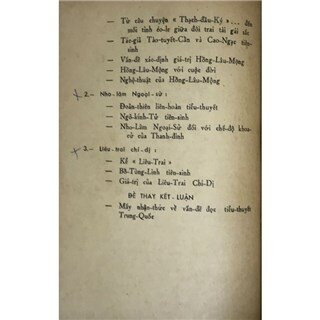 — Từ câu chuyện « Thạch-đầu-Ký » ... đến
mối tình éo-le giữa đôi trai tài gái sắc
— Tác-giả Tào-tuyết-Cần và Cao-Ngạc tiên-
sinh
— Vấn-đề xác-định giá-trị Hồng-Lâu-Mộng
— Hồng-Lâu-Mộng với cuộc đời
— Nghệ-thuật của Hồng-Lâu-Mộng
2.— Nho-lâm Ngoại-sử :
— Đoản-thiên liên-hoàn tiểu-thuyết
— Ngô-kính-Tử tiên-sinh
— Nho-Lâm Ngoại-Sử đối với chế-độ khoa-
cử của Thanh-đình
3.— Liêu-trai chí-dị :
— Kể « Liêu-Trai »
— Bồ-Tùng-Linh tiên-sinh
— Giá-trị của Liêu-Trai Chí-Dị
ĐỂ THAY KẾT-LUẬN
— Mấy nhận-thức về vấn-đề đọc tiểu-thuyết
Trung-Quốc